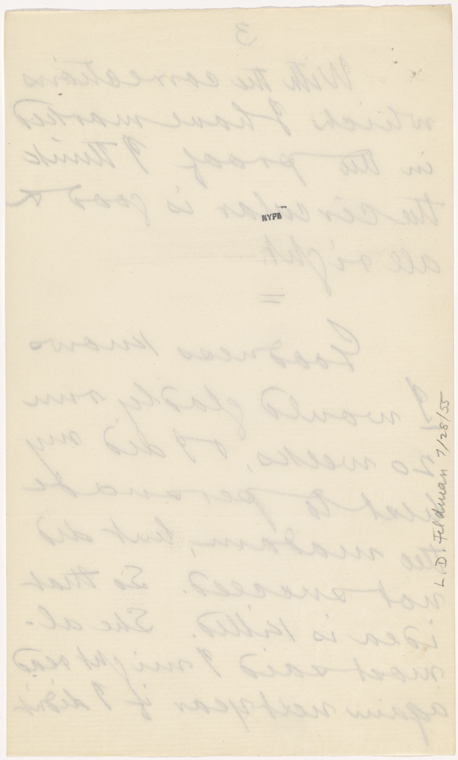 3
With the corrections
which I have marked
in the proof I think
the circular is good &
all right.
NYPB
Goodness knows
I would gladly run
20 weeks, & did my
best to persuade
the madam, but did
not succeed. So that
idea is killed. She al-
most said I might read
again next year if I didn't
L. D. Feldman 7/28/55